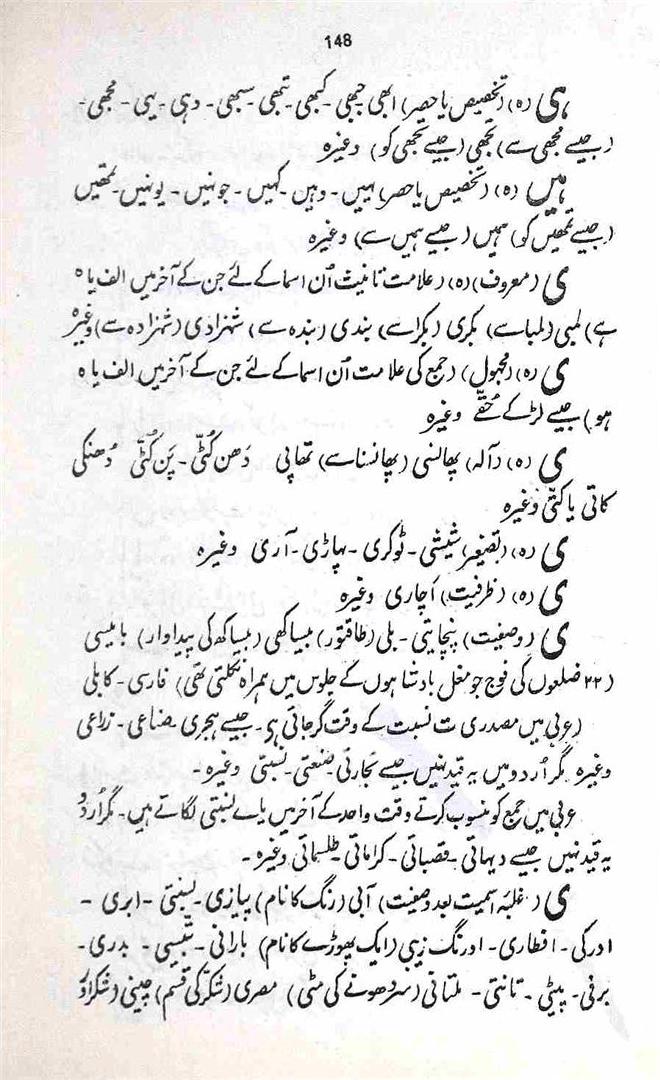 148
ہی (ہ) (تخصیص یا حصر) ابھی جبھی - کبھی - تبھی - سبھی - وہی - یہی - مجھی -
(جیسے مجھی سے) تجھی (جیسے تجھی کو) وغیرہ
ہیں (ہ) (تخصیص یا حصر) یہیں - وہیں - کہیں - جونہیں - یونہیں - تمھیں
(جیسے تمھیں کو) ہمیں (جیسے ہمیں سے) وغیرہ
ی (معروف) (ہ) (علامت تانیث اُن اسما کے لئے جن کے آخر میں الف یا ہ
ہے) لمبی (لمبا سے) بکری (بکرا سے) بندی (بندہ سے) شہزادی (شہزادہ سے) وغیرہ
ی (ہ) (مجہول) (جمع کی علامت اُن اسما کے لئے جن کے آخر میں الف یا ہ
ہو) جیسے لڑکے حُقّے وغیرہ
ی (ہ) (آلہ) پھانسی (پھانسنا سے) تھاپی دَھن کُٹّی - پَن کُٹّی دُھنکی
کاتی یا کتی وغیرہ
ی (ہ) (تصغیر) شیشی - ٹوکری - پہاڑی - آری وغیرہ
ی (ہ) (ظرفیت) اَچاری وغیرہ
ی (وصفیت) پنچایتی - بلی (طاقتور) بیساکھی (بیساکھ کی پیداوار) بائیسی
(۲۲ ضلعوں کی فوج جو مغل بادشاہوں کے جلوس میں ہمراہ نکلتی تھی) فارسی - کابلی
(عربی میں مصدری ت نسبت کے وقت گر جاتی ہے - جیسے ہجری - صناعی - زراعی
وغیرہ مگر اُردو میں یہ قید نہیں جیسے تجارتی - صنعتی - نسبتی وغیرہ -
عربی میں جمع کو منسوب کرتے وقت واحد کے آخر میں یاے نسبتی لگاتے ہیں - مگر اُردو
یہ قید نہیں جیسے دیہاتی - قصباتی - کراماتی - طلسماتی وغیرہ -
ی (غلبۂ اسمیت بعد وصفیت) آبی (رنگ کا نام) پیازی - بسنتی - ابری -
ادرکی - افطاری - اورنگ زیبی (ایک پھوڑے کا نام) بارانی - بتیسی - بدری -
برفی - پیٹی - تانتی - ملتانی (سر دھونے کی مٹی) مصری (شکر کی قسم) چینی (شکر اور